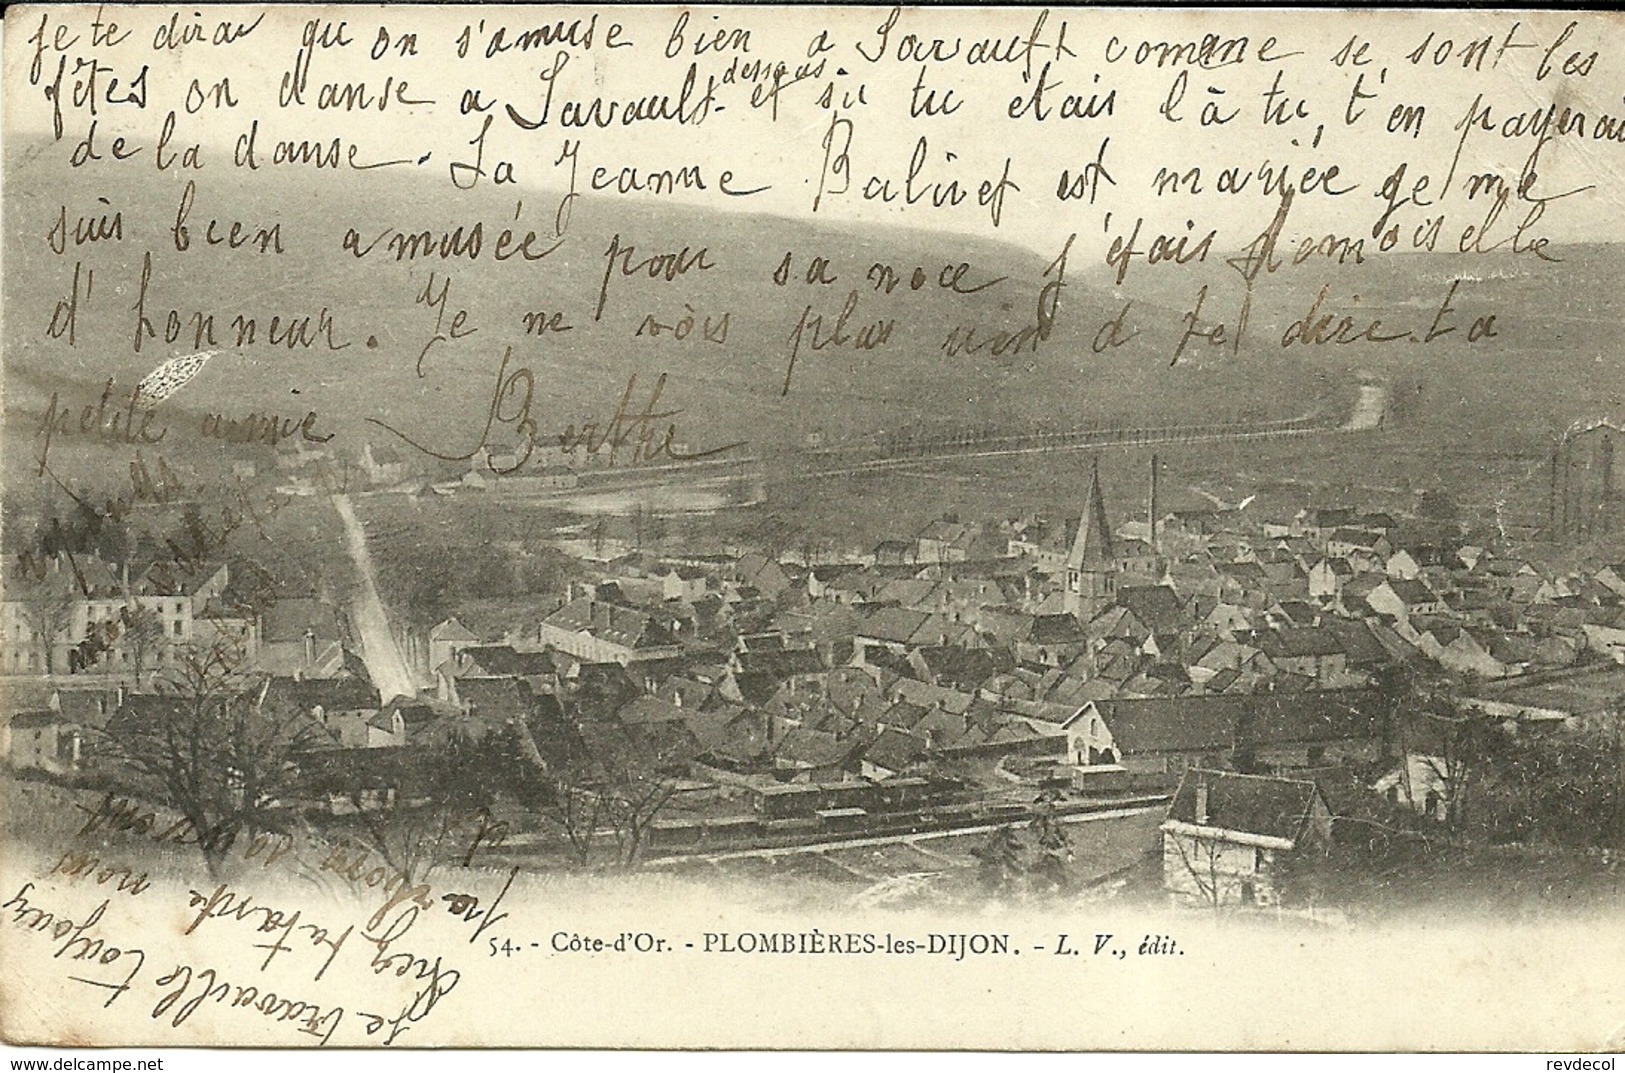 je te dirai qu on s'amuse bien a Savault comme se sont les
fêtes on danse a Savault dessous. et si tu étais là tu t'en payerai
de la danse. La Jeanne Balivet est mariée je me
suis bien amusée pour sa noce j'étais demoiselle
d'honneur. Je ne vois plus rien a te dire. ta
petite amie Berthe
Je travaille toujours
chez ta tante nous
54. - Côte-d'Or. - PLOMBIÈRES-les-DIJON. - L. V., édit.
www.delcampe.net
revdecol